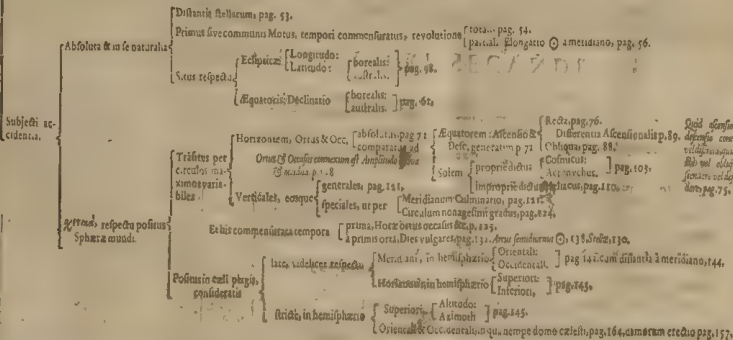 Subjecti accidentia.
Absoluta & in se naturalia
Distantia stellarum, pag. 53.
Primus sive communis Motus, tempori commensuratus, revolutione
totali pag. 54.
partiali. Elongatio ☉ a meridiano, pag. 56.
Situs respectu
Eclipticæ
Longitudo:
Latitudo:
borealis:
australis.
pag. 58.
Æquatoris; Declinatio
borealis:
australis.
pag. 61.
respectu positus Sphæræ mundi.
Trãsitus per circulos maximos variabiles
Horizontem, Ortus & Occ,
absolutus, pag 71
comparatus ad
Ortus & Occasus connexum est Amplitudo
Æquatorem: Ascensio &
Desc. generatim p 71
Recta, pag. 76.
Differentia Ascensionalis p. 89.
Obliqua, pag. 88.
Quid ascensio
pag. 75.
Solem
propriè dictus
Cosmicus:
Acronychus.
pag. 103.
impropriè dictus
pag. 110.
Verticales, eosque
generales, pag. 121,
speciales, ut per
Meridianum Culminatio, pag. 121.
Circulum nonagesimi gradus, pag. 124.
Et his commensurata tempora
prima, Horæ ortus occasus &c, p. 125.
à primis orta, Dies vulgares, pag. 132. Arcus semidiurnus ☉, 138. Stellæ, 130.
Positus in cæli plagis, consideratis
latè, videlicet respectu
Meridiani, in hemisphærio
Orientali:
Occidentali.
pag 142. cum distantia à meridiano, 144.
Horizontis, in hemisphærio
Superiori:
Inferiori,
pag. 145.
strictè, in hemisphærio
Superiori,
Altitudo:
Azimuth
pag. 145.
Orientali & Occidentali, nempe domo cælesti, pag. 164, earum erectio pag. 157.